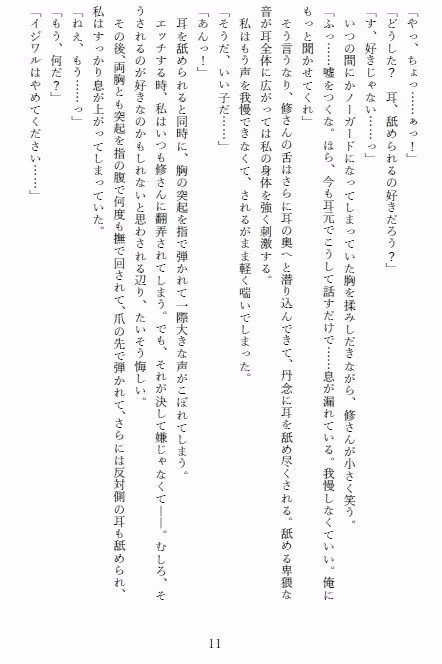 「やっ、ちょっ……ぁっ！」
「どうした？　耳、舐められるの好きだろう？」
「す、好きじゃない……っ」
いつの間にかノーガードになってしまっていた胸を揉みしだきながら、修さんが小さく笑う。
「ふっ……嘘をつくな。ほら、今も耳元でこうして話すだけで……息が漏れている。我慢しなくていい。俺に
もっと聞かせてくれ」
そう言うなり、修さんの舌はさらに耳の奥へと潜り込んできて、丹念に耳を舐め尽くされる。舐める卑猥な
音が耳全体に広がっては私の身体を強く刺激する。
私はもう声を我慢できなくて、されるがまま軽く喘いでしまった。
「そうだ、いい子だ……」
「あんっ！」
耳を舐められると同時に、胸の突起を指で弾かれて一際大きな声がこぼれてしまう。
エッチする時、私はいつも修さんに翻弄されてしまう。でも、それが決して嫌じゃなくて――。むしろ、そ
うされるのが好きなのかもしれないと思わされる辺り、たいそう悔しい。
その後、両胸とも突起を指の腹で何度も撫で回されて、爪の先で弾かれて、さらには反対側の耳も舐められ、
私はすっかり息が上がってしまっていた。
「ねぇ、もう……っ」
「もう、何だ？」
「イジワルはやめてください……」
11